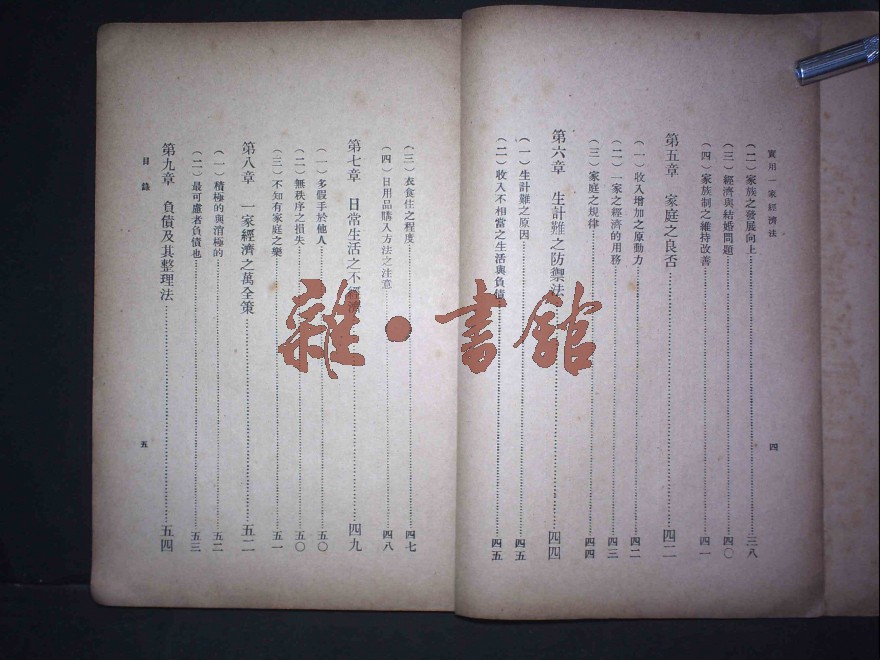 實用一家經濟法
四
(二)家族之發展向上……三八
(三)經濟與結婚問題……四〇
(四)家族制之維持改善……四一
第五章 家庭之良否……四二
(一)收入增加之原動力……四二
(二)一家之經濟的用務……四三
(三)家庭之規律……四四
第六章 生計難之防禦法……四四
(一)生計難之原因……四五
(二)收入不相當之生活與負債……四五
(三)衣食住之程度……四七
(四)日用品購入方法之注意……四八
第七章 日常生活之不經濟……四九
(一)多假手於他人……五〇
(二)無秩序之損失……五〇
(三)不知有家庭之樂……五一
第八章 一家經濟之萬全策……五二
(一)積極的與消極的……五二
(二)最可慮者負債也……五三
第九章 負債及其整理法……五四
目錄
五
雜·書館